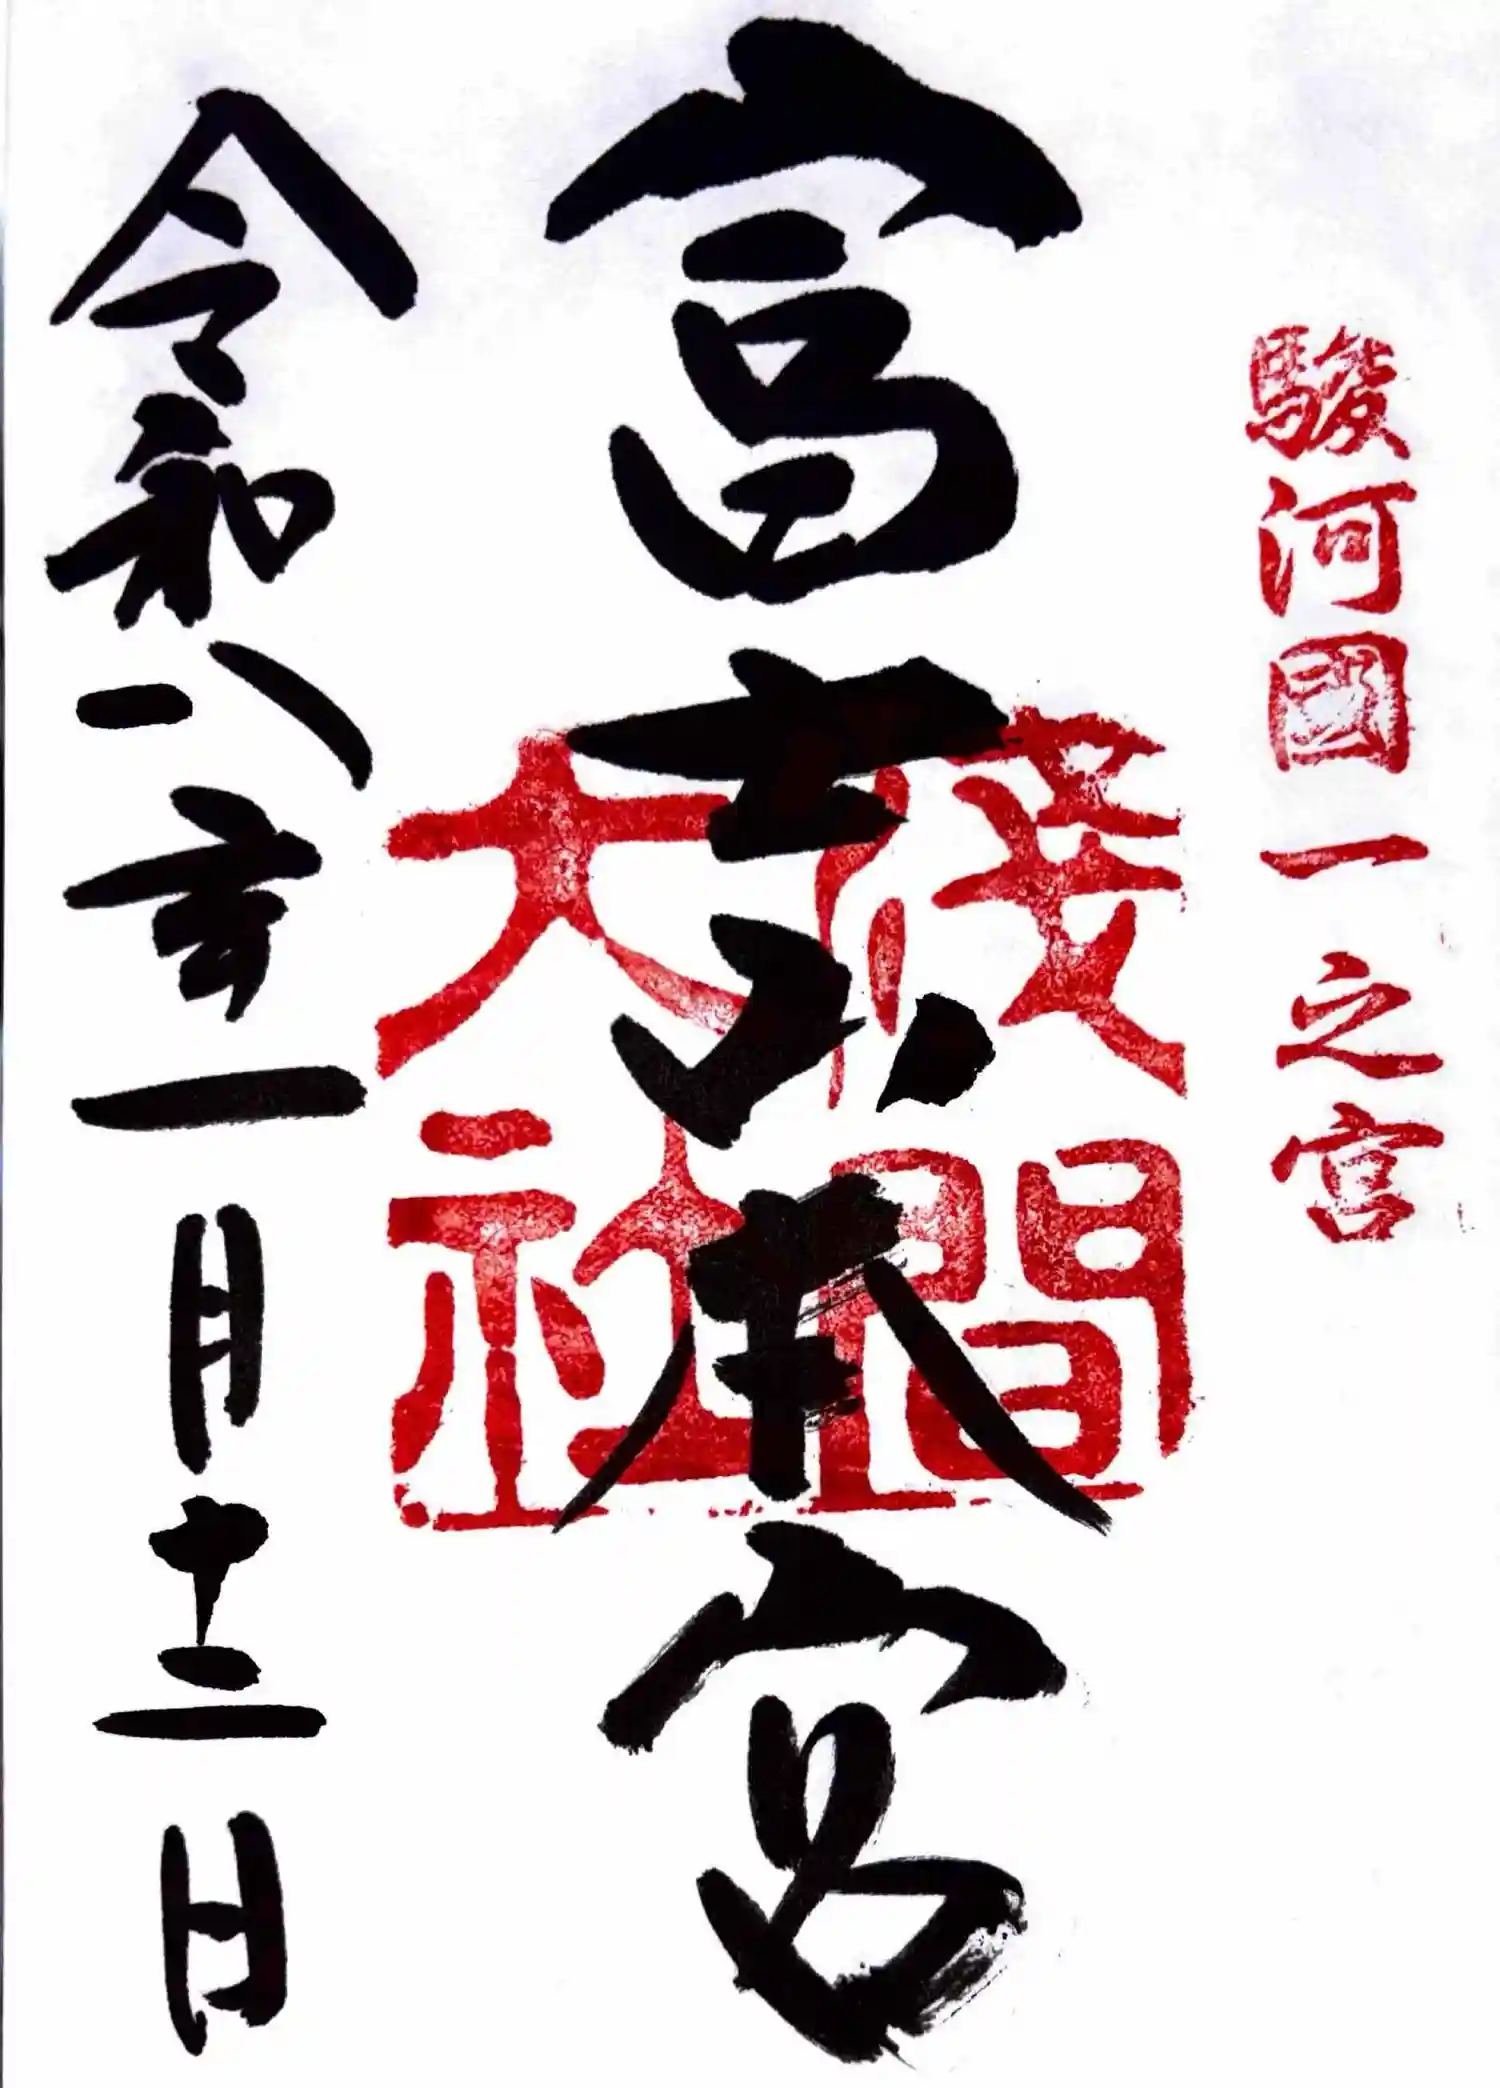 駿河國一之宮
富士山本宮
淺間大社
令和八年一月十二日